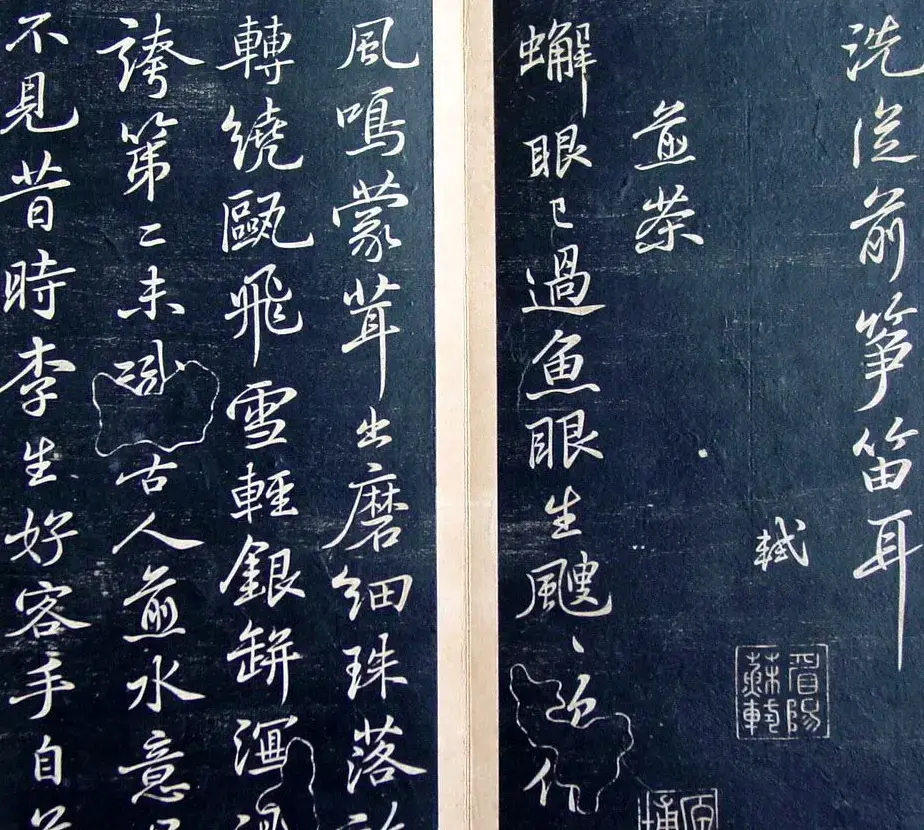 洗從前箏笛耳
軾
眉陽蘇軾
煎茶
蠏眼已過魚眼生颼〻欲作
風鳴蒙茸出磨細珠落
轉繞甌飛雪輕銀缾瀉湯
誇第二未識古人煎水意
不見昔時李生好客手自煎